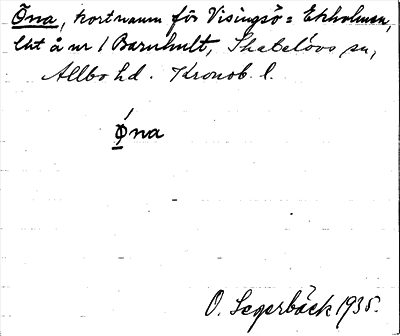 Õna, kortnamn för Visingsö = Ekholmen,
lht å nr 1 Barnhult, Skatelövs sn,
Allbo hd. Kronob. l.
Óna
O. Segerbäck 1935.